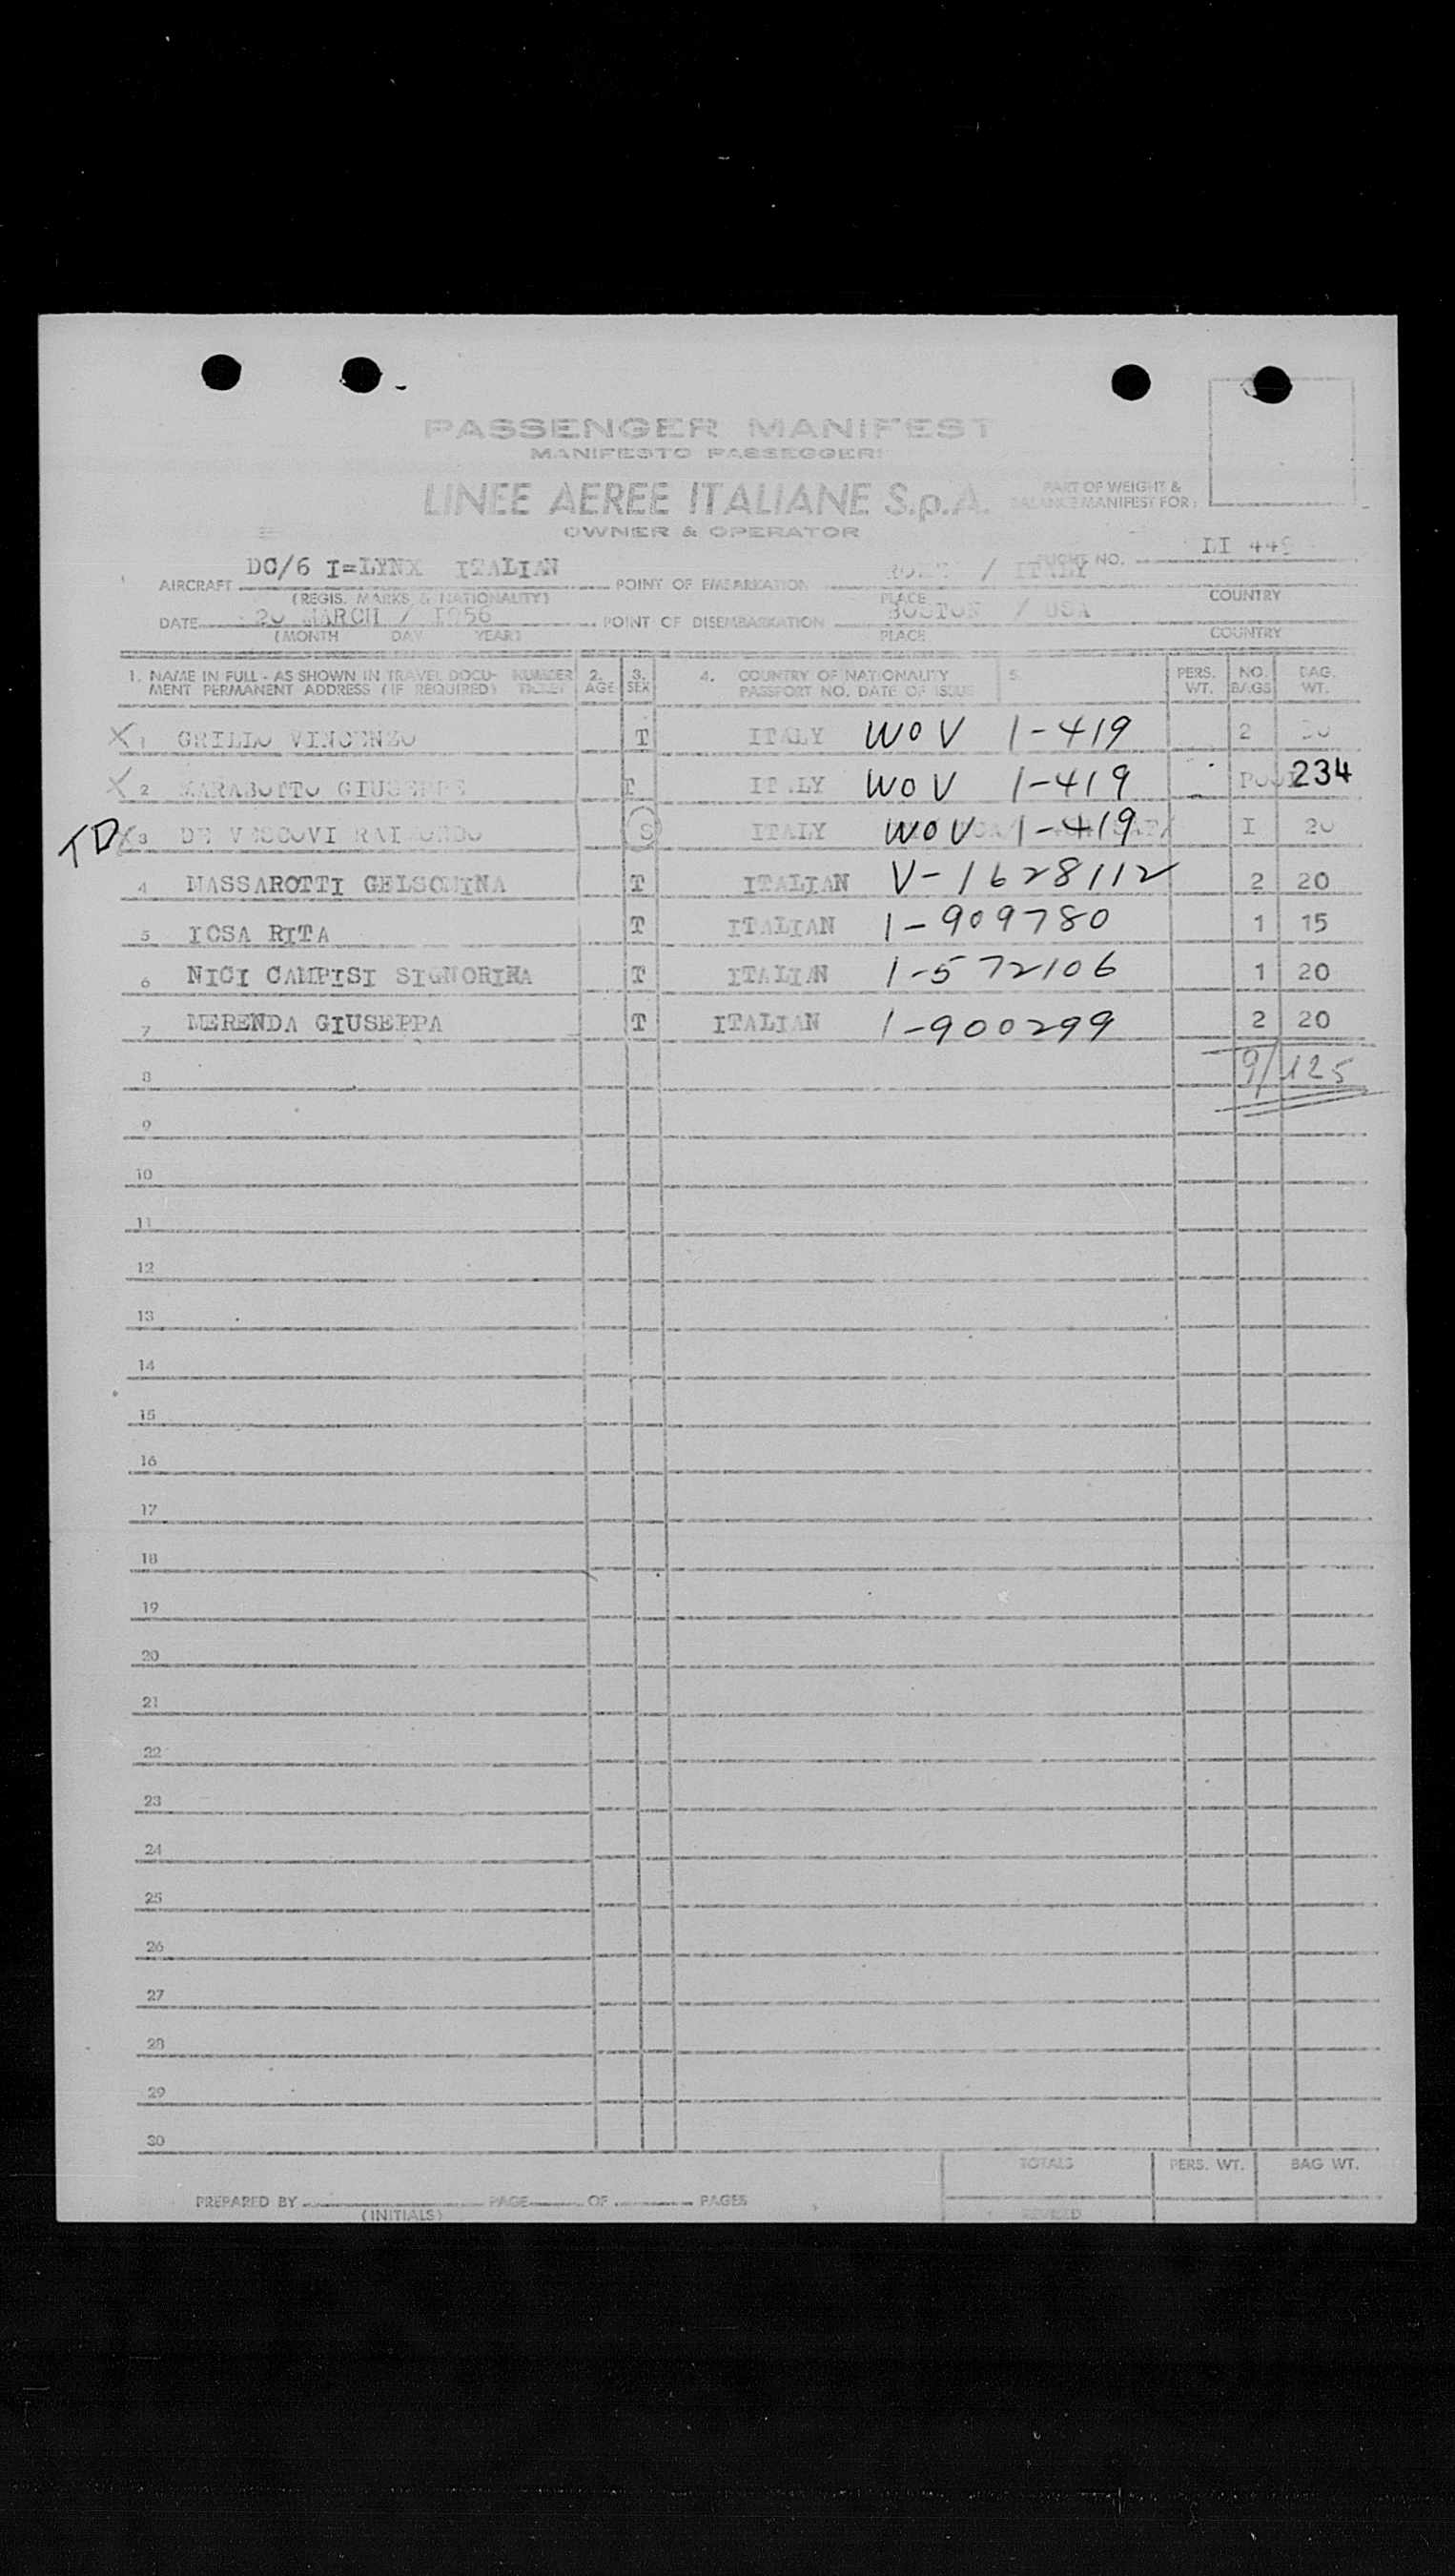 PASSENGER MANIFEST
MANIFESTO PASSEGGERI
LINEE AEREE ITALIANE S.p.A.
OWNER & OPERATOR
PART OF WEIGHT &
BALANCE MANIFEST FOR:
FLIGHT NO. LI 449
AIRCRAFT DC/6 I=LYNX ITALIAN POINT OF EMBARKATION ROME / ITALY
(REGIS. MARKS & NATIONALITY) PLACE COUNTRY
DATE 20 MARCH / I956 POINT OF DISEMBARKATION BOSTON / USA
(MONTH DAY YEAR) PLACE COUNTRY
1. NAME IN FULL - AS SHOWN IN TRAVEL DOCU- NUMBER 2. 3. 4. COUNTRY OF NATIONALITY 5. PERS. NO. BAG.
MENT PERMANENT ADDRESS (IF REQUIRED) TICKET AGE SEX PASSPORT NO. DATE OF ISSUE WT. BAGS WT.
X 1 GRILLO VINCENZO T ITALY WOV 1-419 2
X 2 MARABOTTO GIUSEPPE T ITALY WOV 1-419 POOL 234
TD X 3 DE VESCOVI RAIMONDO S ITALY WOV 1-419 I 20
4 MASSAROTTI GELSOMINA T ITALIAN V-1628112 2 20
5 IOSA RITA T ITALIAN 1-909780 1 15
6 NICI CAMPISI SIGNORINA T ITALIAN 1-572106 1 20
7 MERENDA GIUSEPPA T ITALIAN 1-900299 2 20
8 9/125
9
10
11
12
13
14
15
16
17
18
19
20
21
22
23
24
25
26
27
28
29
30
TOTALS PERS. WT. BAG WT.
PREPARED BY PAGE OF PAGES
(INITIALS) REVISED